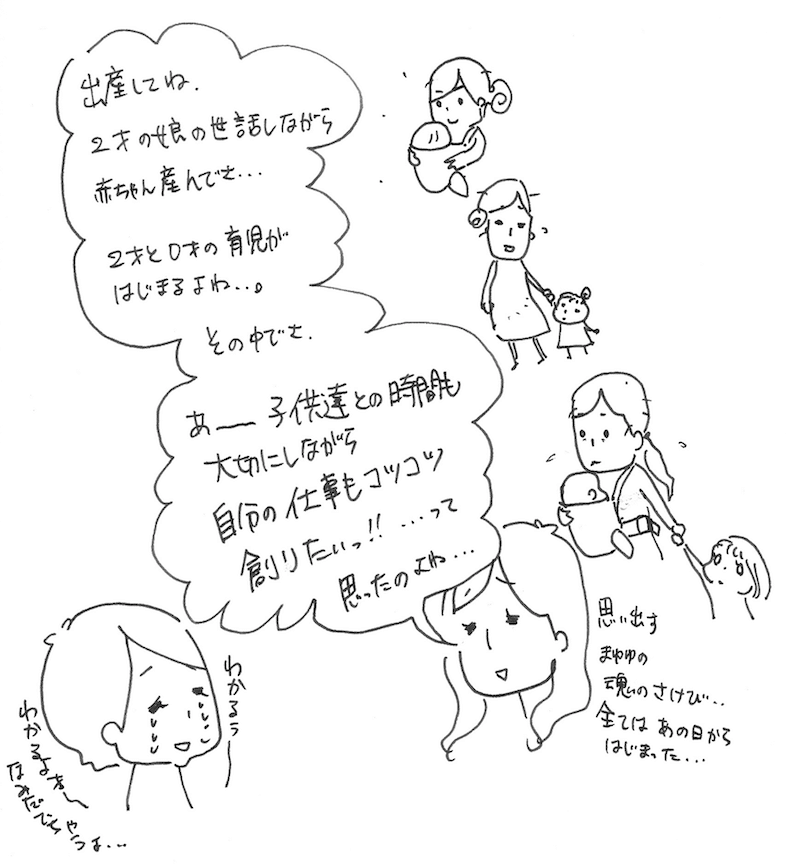 出産してね.
2才の娘の世話しながら
赤ちゃん産んでさ...
2才と0才の育児が
はじまるよね...。
その中でさ.
あー子供達との時間も
大切にしながら
自分の仕事もコツコツ
創りたいっ!!...って
思ったのよね...
思い出す
まゆゆの
魂のさけび...
全ては あの日から
はじまった...
わかるぅー
わかるよぉー
なみだでちゃ
うよ...